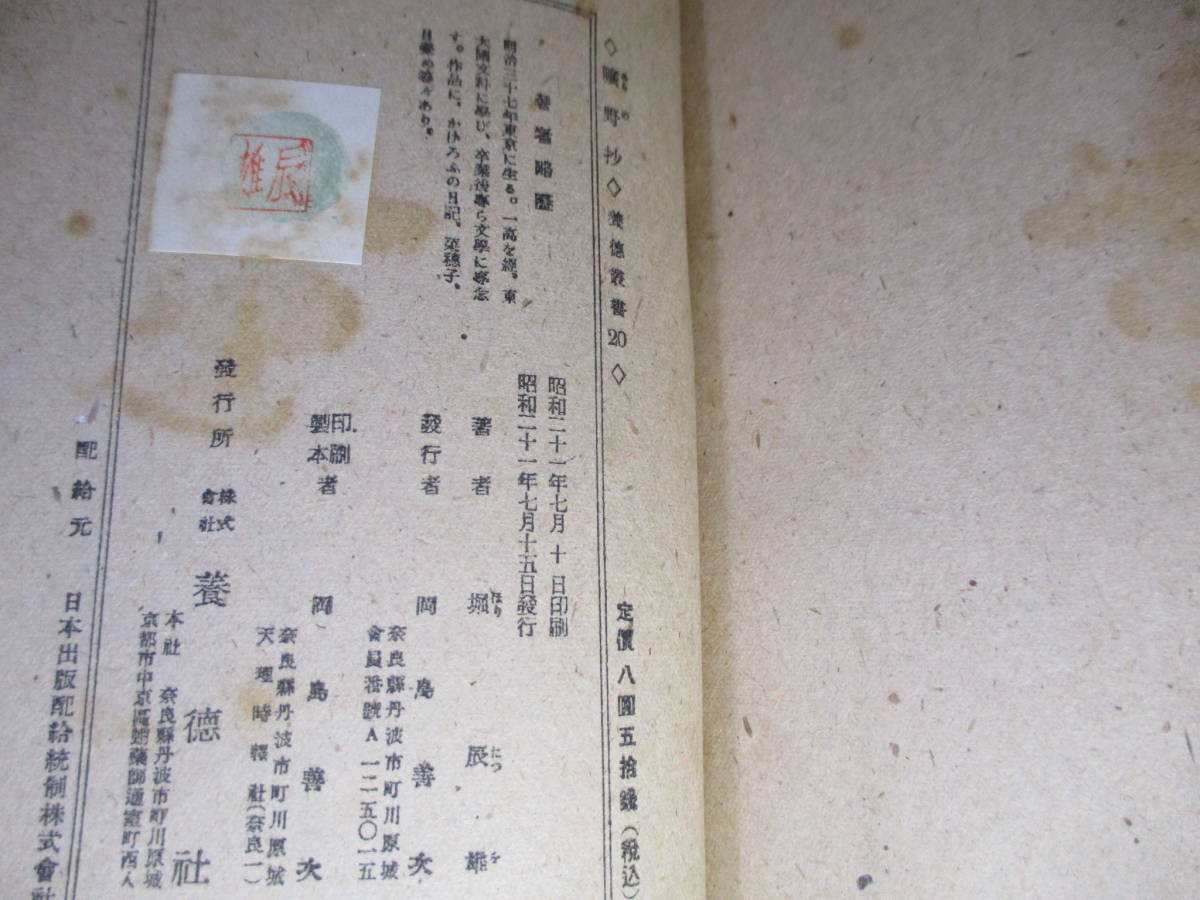 ◇曠野抄◇養德叢書20◇
あら
の
定價八圓五拾錢(税込)
著者略歷
明治三十七年東京に生る。一高を經、東
大國文科に學び、卒業後專ら文學に專念
す。作品に、かげろふの日記、菜穗子、
昭和二十一年七月十日印刷
昭和二十一年七月十五日發行
著者 堀辰雄
ほり
たつ
を
發行者 岡島善次
奈良縣丹波市町川原城
會員番號A一二五〇一五
印刷
製本者 岡島善次
奈良縣丹波市町川原城
天理時報社(奈良一)
發行所 株式
會社 養德社
本社 奈良縣丹波市町川原城
京都市中京區蛸藥師通室町西入
配給元 日本出版配給統制株式會社
辰雄